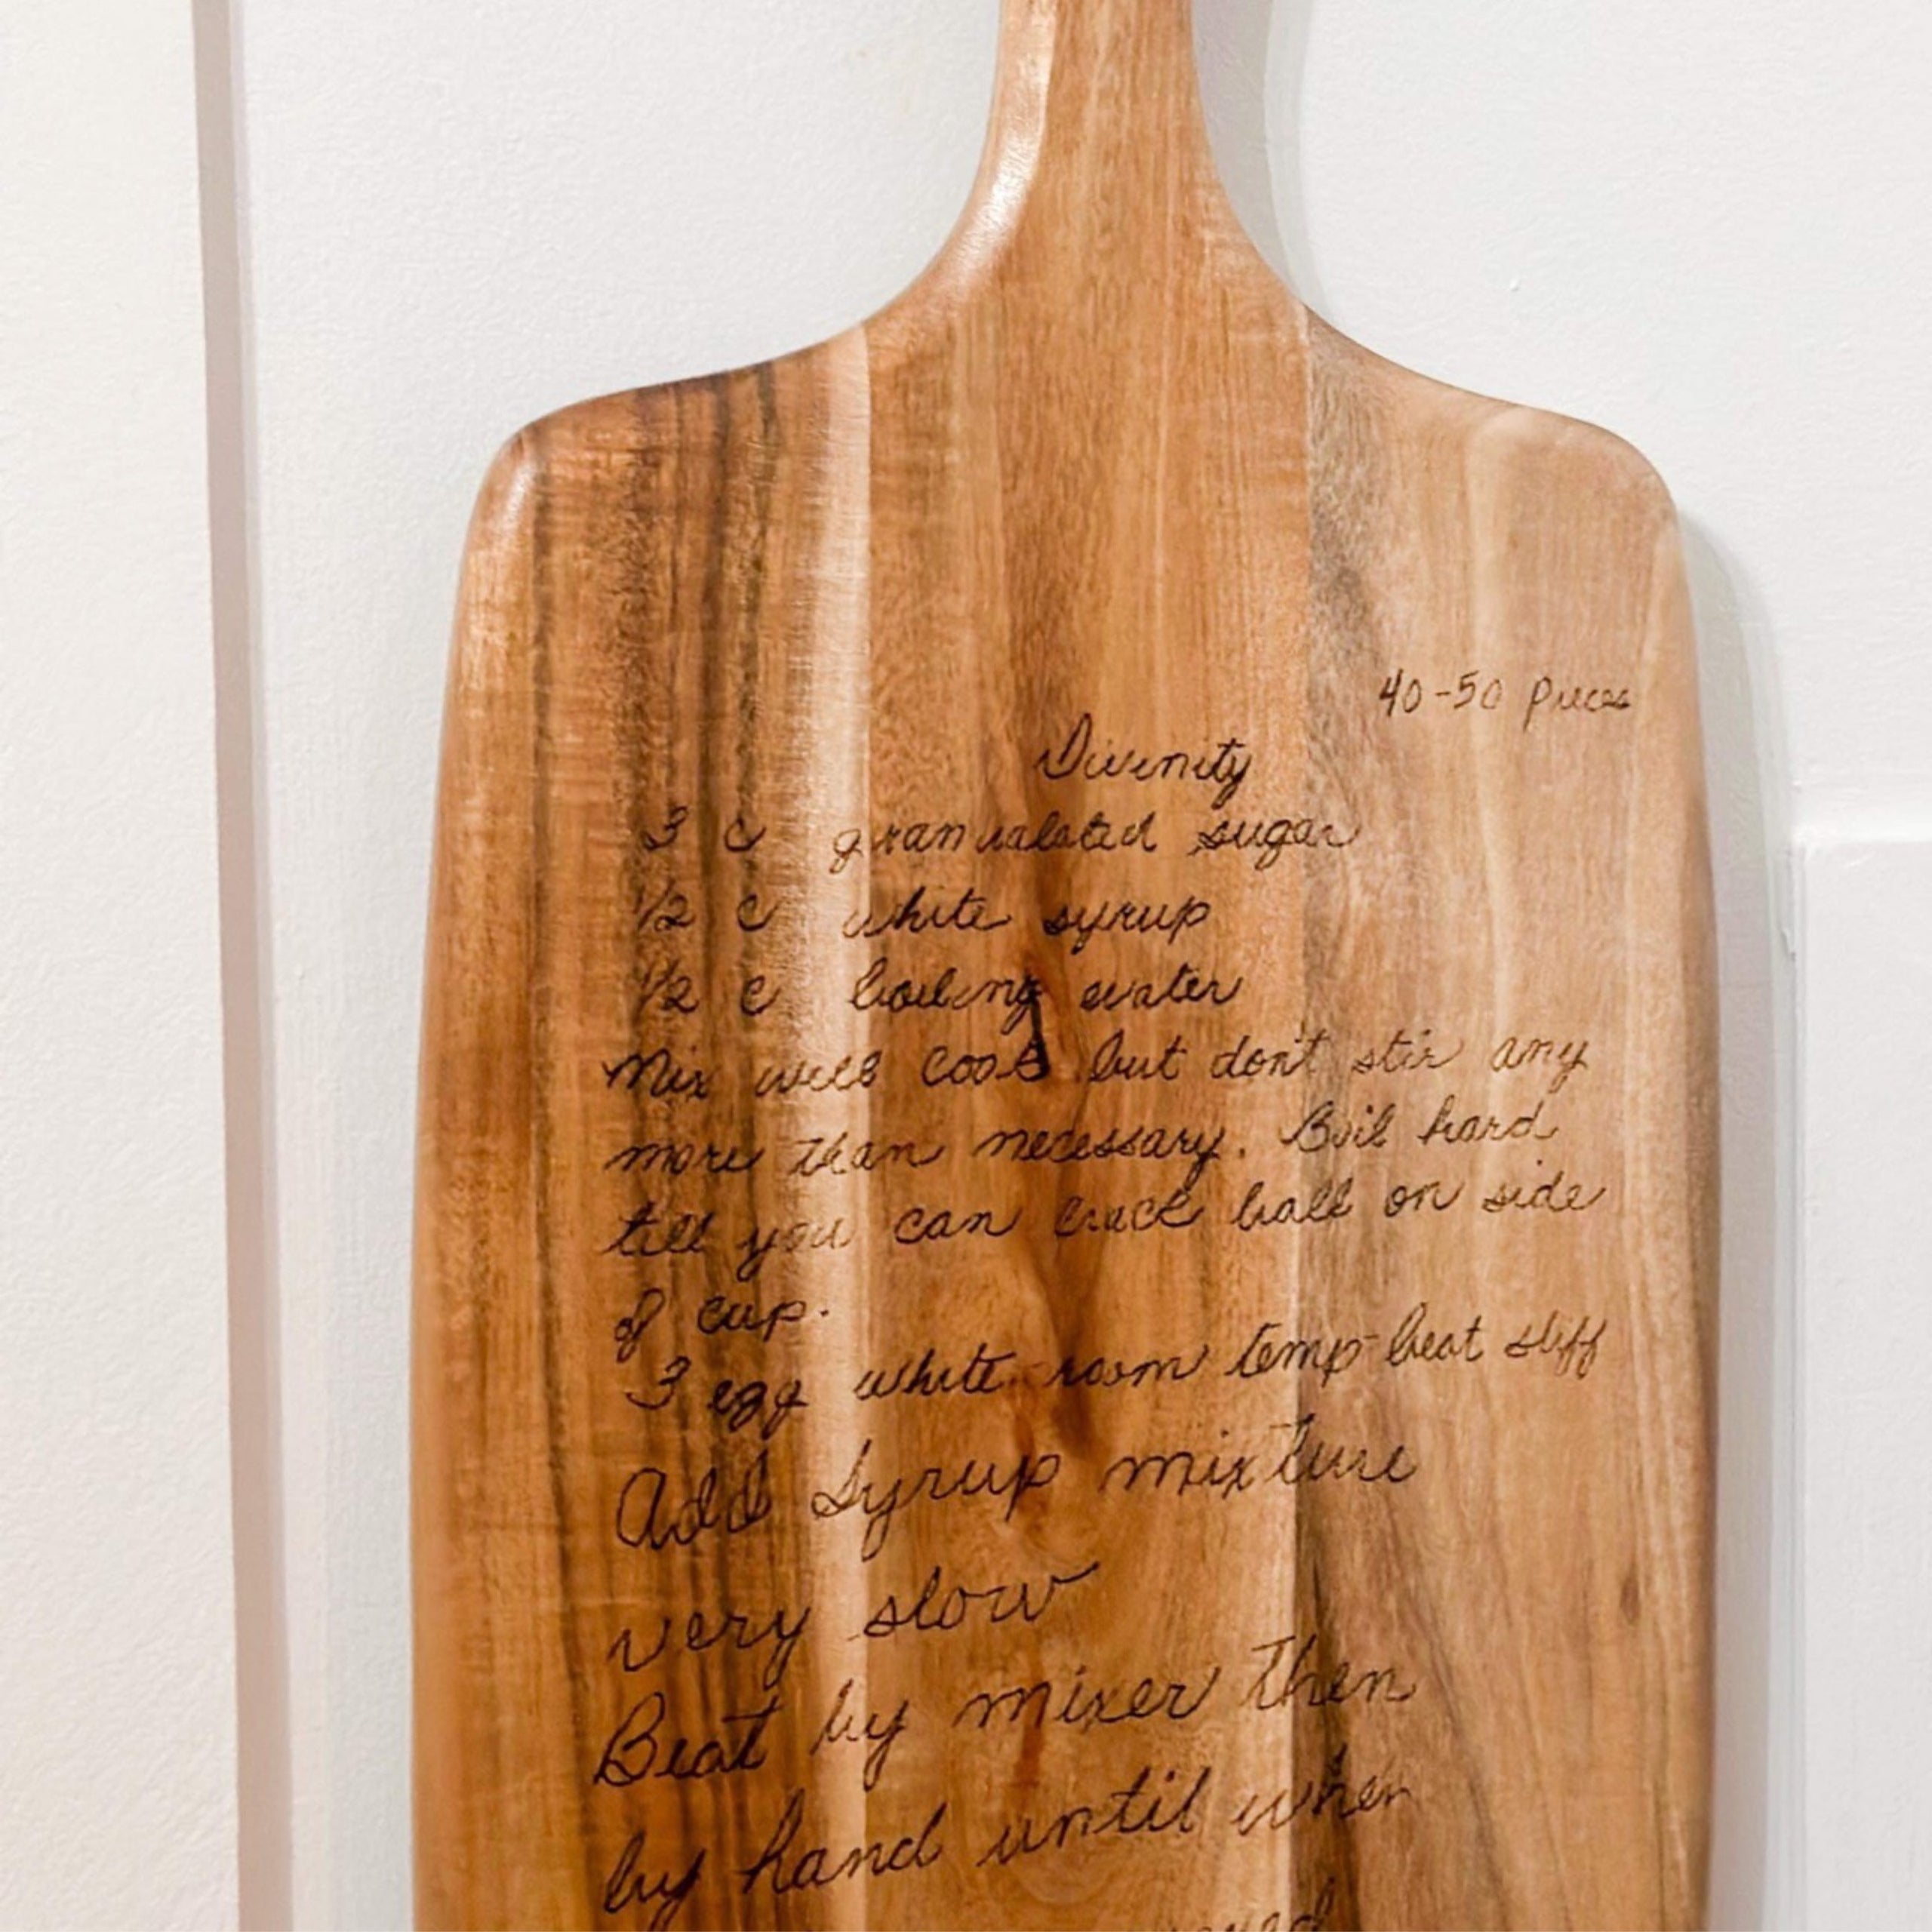 40-50 pieces
Divinity
3 c granualated sugar
1/2 c white syrup
1/2 c boiling water
Mix well cook but don't stir any
more than necessary. Boil hard
till you can crack ball on side
of cup.
3 egg white room temp beat stiff
Add Syrup mixture
very slow
Beat by mixer then
by hand until when